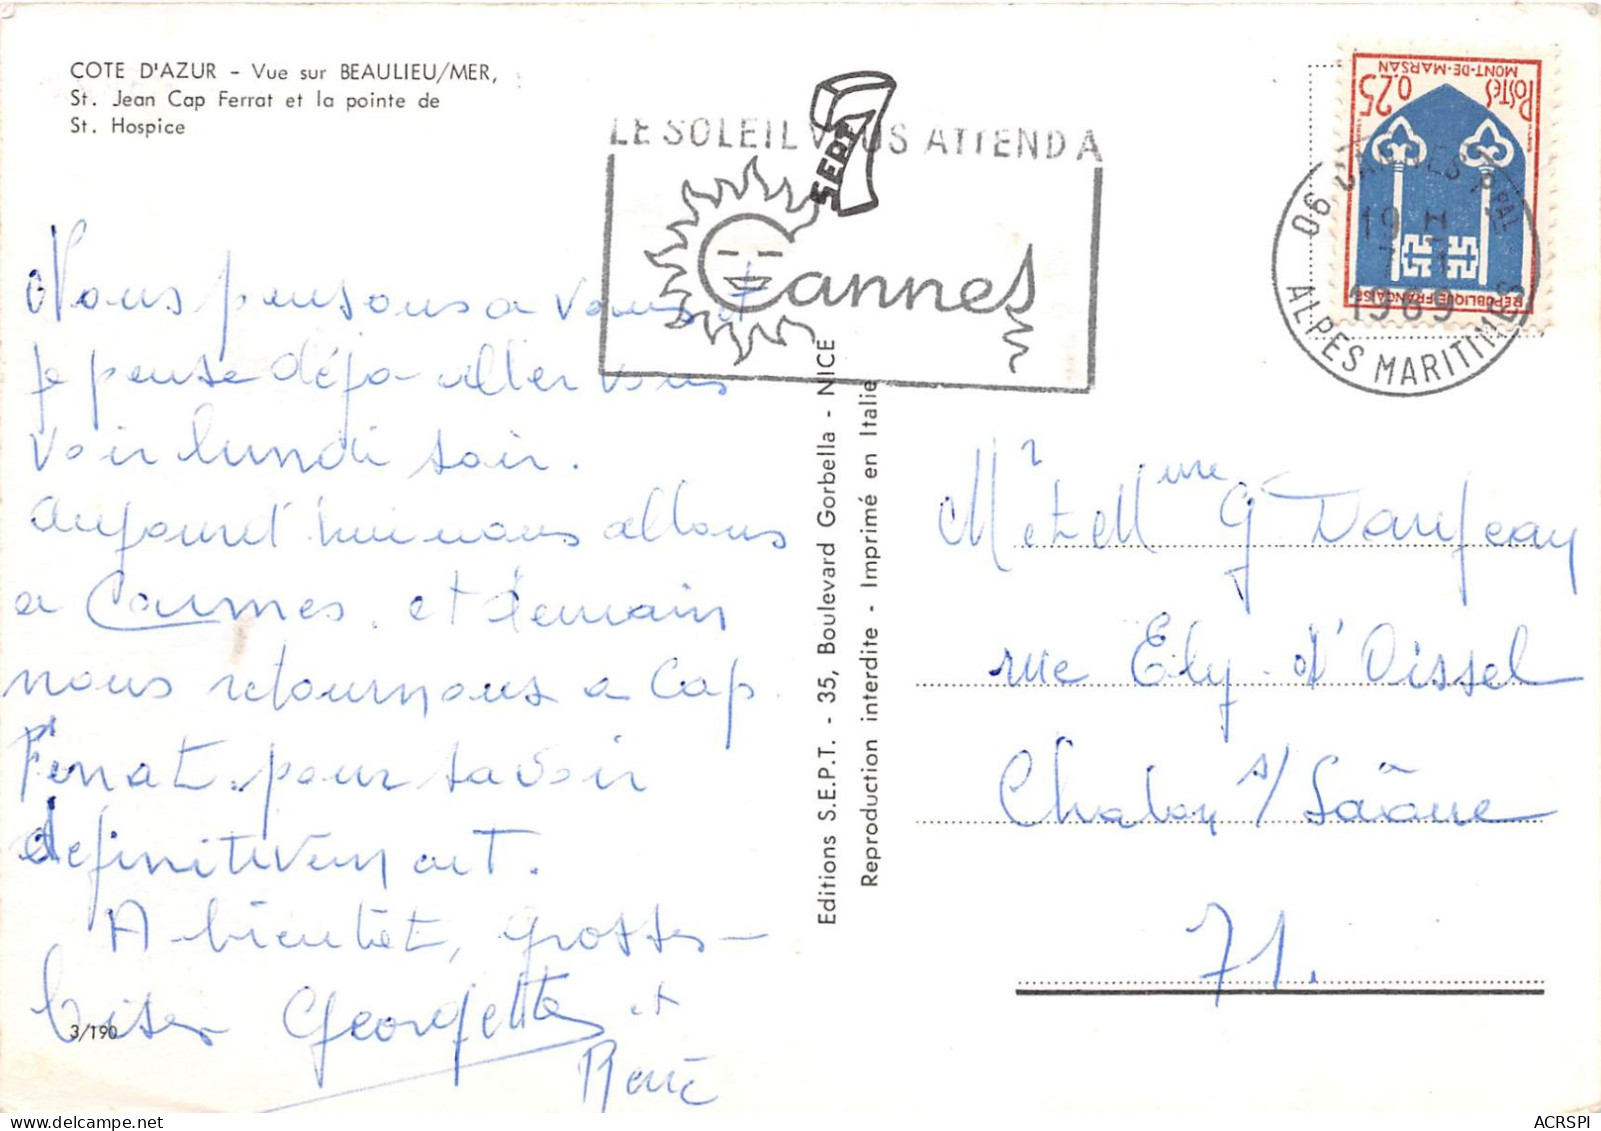 COTE D'AZUR - Vue sur BEAULIEU/MER,
St. Jean Cap Ferrat et la pointe de
St. Hospice
LE SOLEIL VOUS ATTEND A
Cannes
SEPT
Postes
0,25
MONT-DE-MARSAN
REPUBLIQUE FRANÇAISE
06 CANNES PPAL
19 H
1969
ALPES MARITIMES
Nous pensons a vous et
je pense déja aller vous
voir lundi soir.
aujourd'hui nous allons
a Cannes. et demain
nous retournons a Cap
Ferrat. pour savoir
definitivement.
A bientôt, grosses
bises Georgette et
René
3/190
Editions S.E.P.T. - 35, Boulevard Gorbella - NICE
Reproduction interdite - Imprimé en Italie
Mr et Mme G
rue Ely d'Oissel
Chalon s/ Saône
71.
ACRSPI